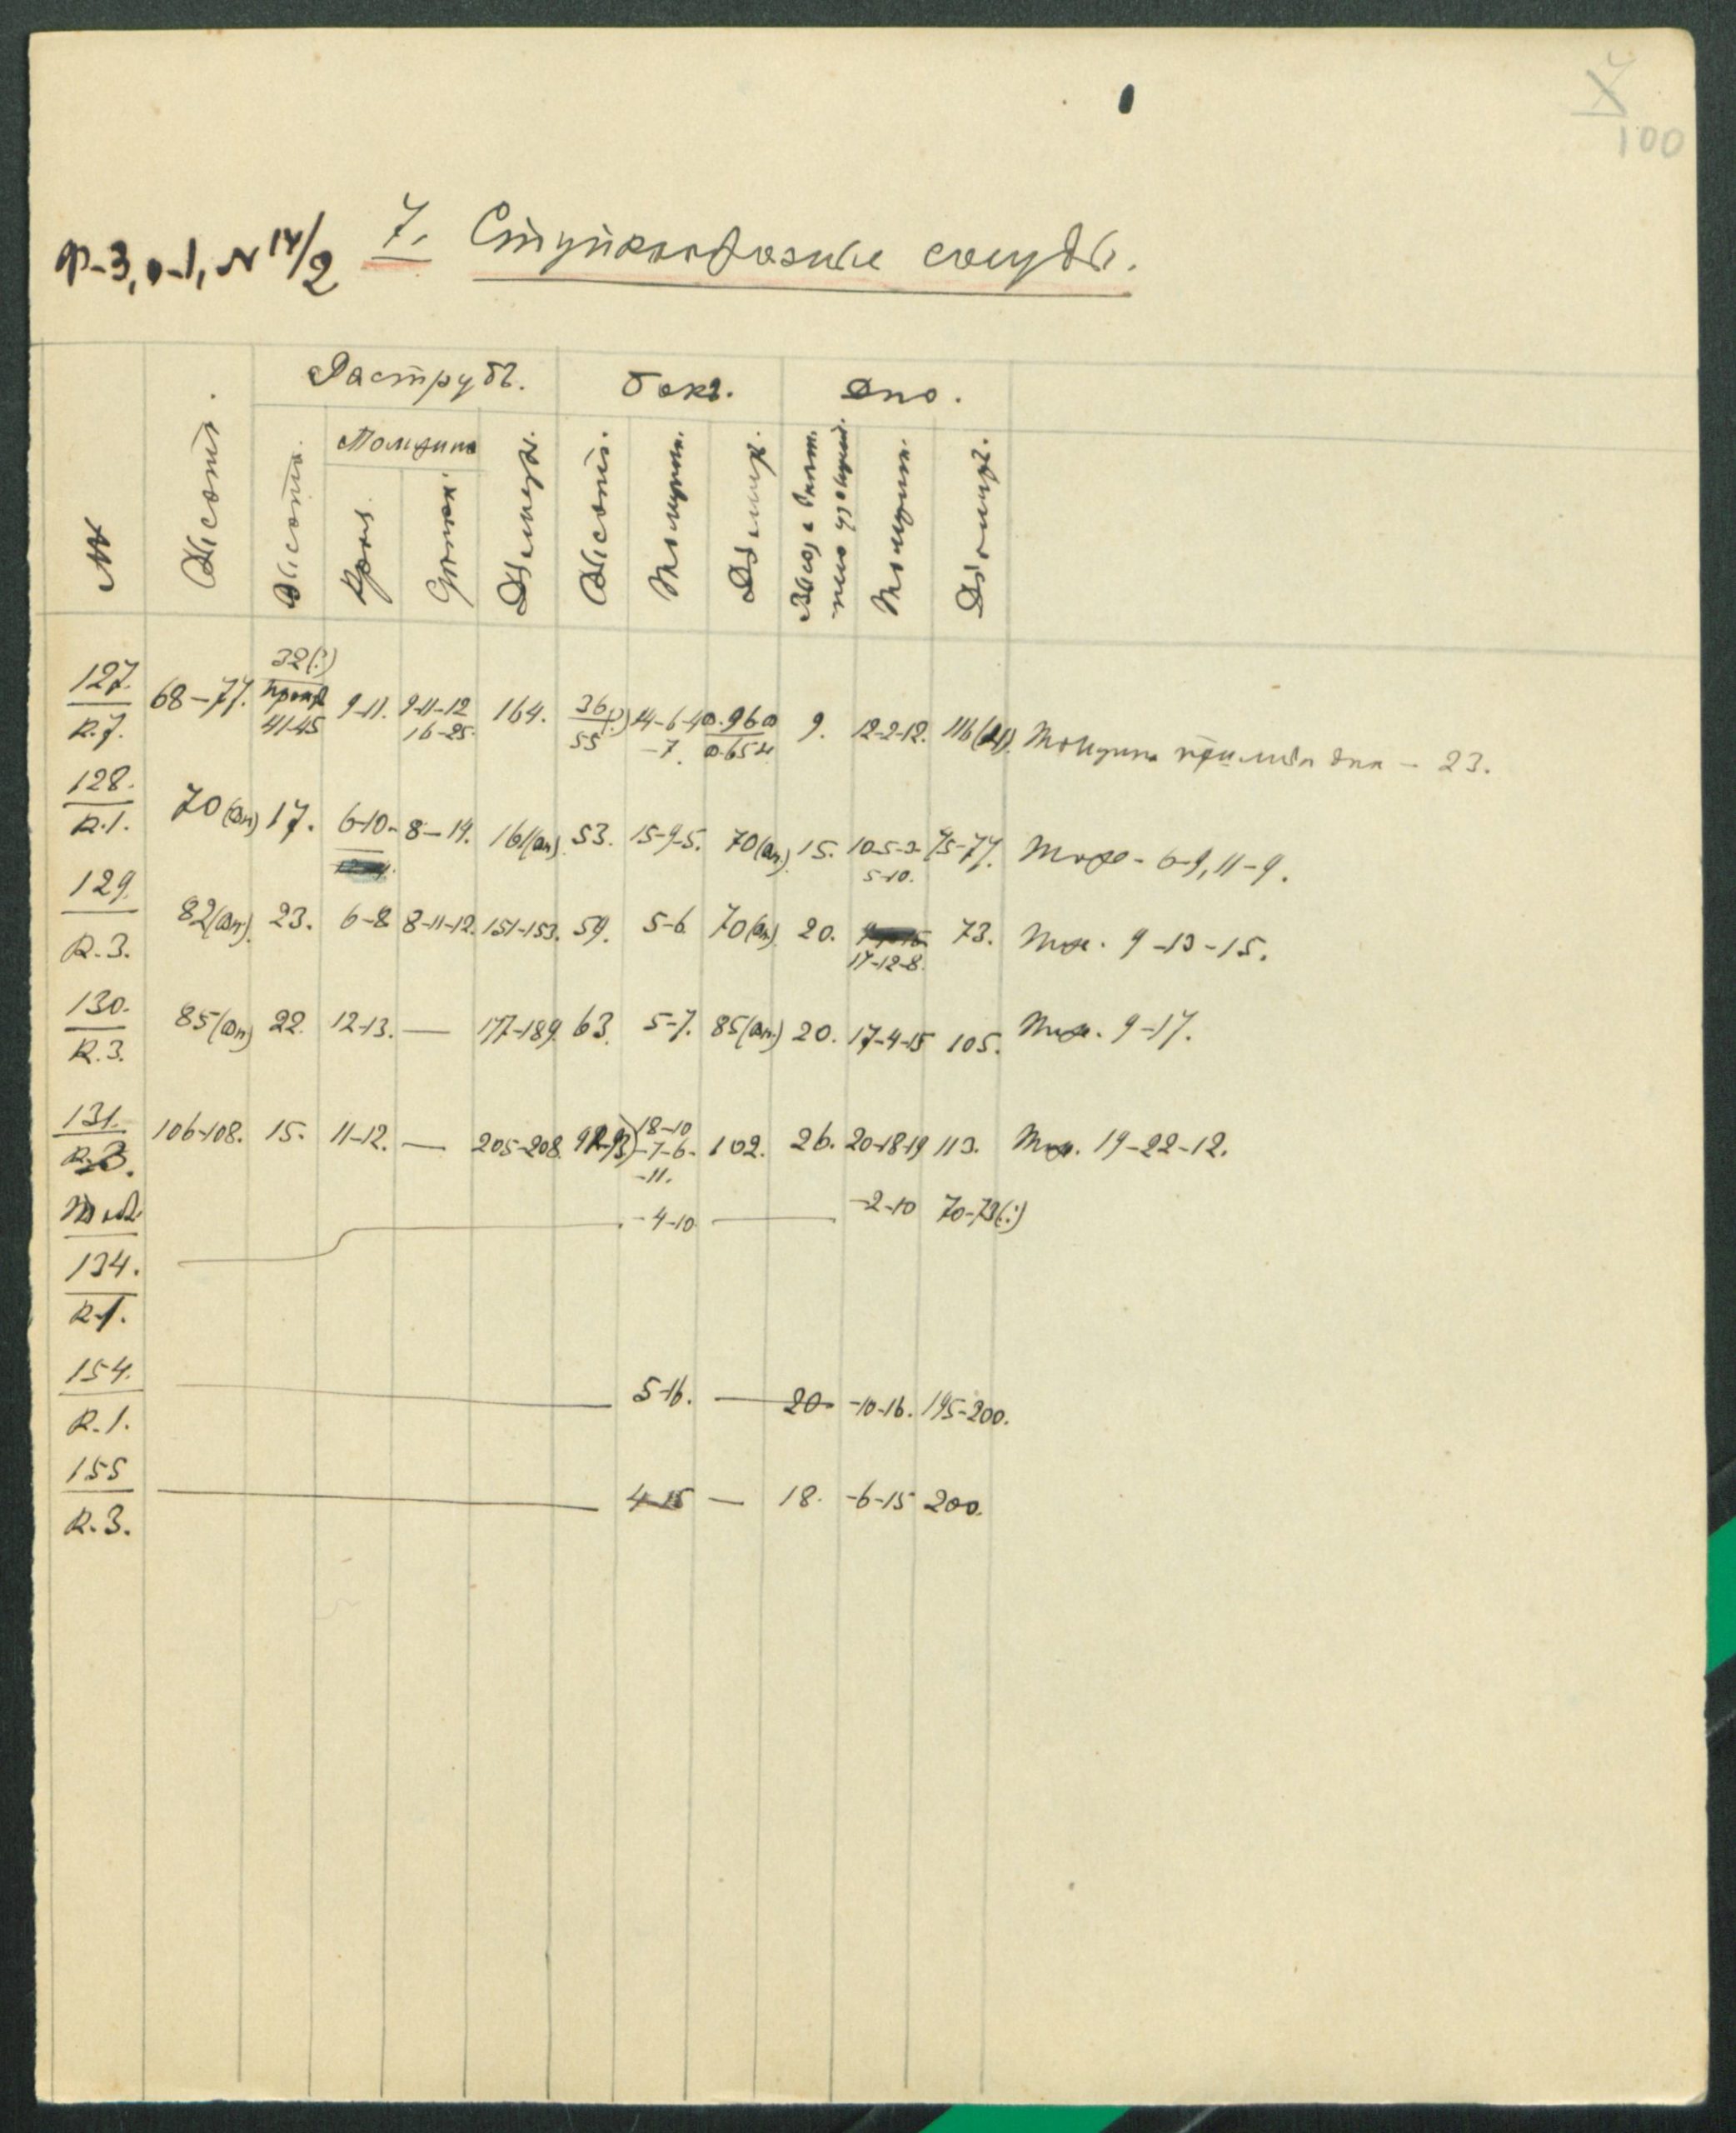 7
100
Ф-3, о-1, № 14/2
7. Ступкообразные сосуды.
Раструбъ. Бокъ. Дно.
№ Высота. Высота. Толщина Діаметръ. Высота. Толщина. Діаметръ. Толщина. Діаметръ.
Края.
127. 68-77. 32(?) 41-45 9-11. 9-11-12 16-25. 164. 36(?) 55 14-6-4 -7. 9. 12-2-12. 116 Толщина дна - 23.
R.7.
128. 70(вн) 17. 6-10. 8-14. 161(вн). 53. 15-9-5. 70(вн.) 15. 10-5-3- 5-10. 75-77. Тоже - 6-9, 11-9.
R.1.
129. 82(вн). 23. 6-8 8-11-12. 151-153. 59. 5-6 70(вн) 20. 17-12-8. 73. Тоже. 9-13-15.
R.3.
130. 85(вн) 22. 12-13. — 177-189. 63. 5-7. 85(вн.) 20. 17-4-15 105. Тоже. 9-17.
R.3.
131. 106-108. 15. 11-12. — 205-208. 18-10 -7-6- -11. 102. 26. 20-18-19 113. Тоже. 19-22-12.
R.3.
— -4-10 — -2-10 70-73(?)
134.
R.1.
154. — 5-16. — 20. -10-16. 195-200.
R.1.
155 — 4-15 — 18. -6-15 200.
R.3.